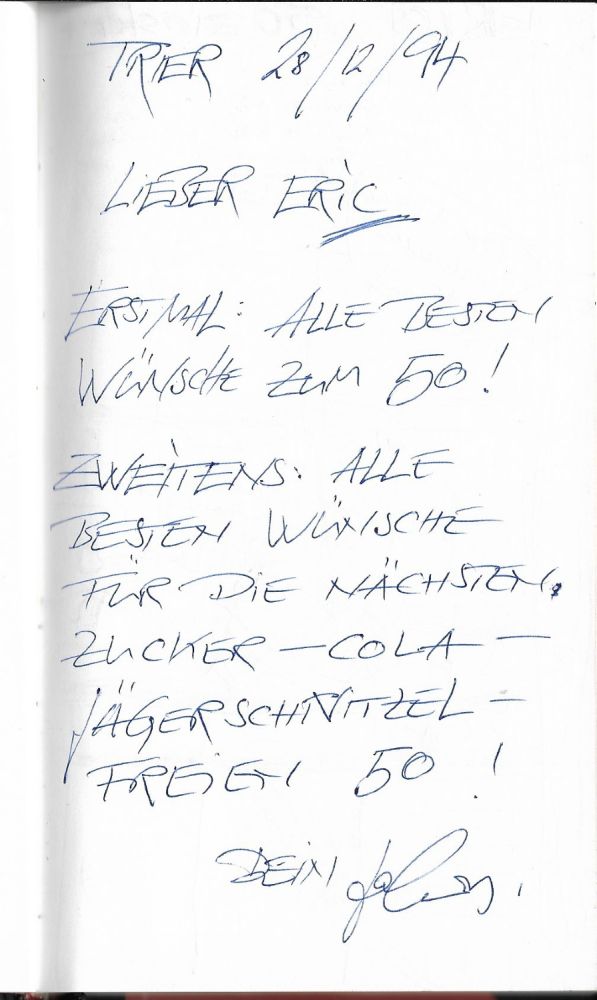 TRIER 28/12/94
LIEBER ERIC
ERSTMAL: ALLE BESTEN
WÜNSCHE ZUM 50!
ZWEITENS: ALLE
BESTEN WÜNSCHE
FÜR DIE NÄCHSTEN,
ZUCKER-COLA-
JÄGERSCHNITZEL-
FREIEN 50!
DEIN